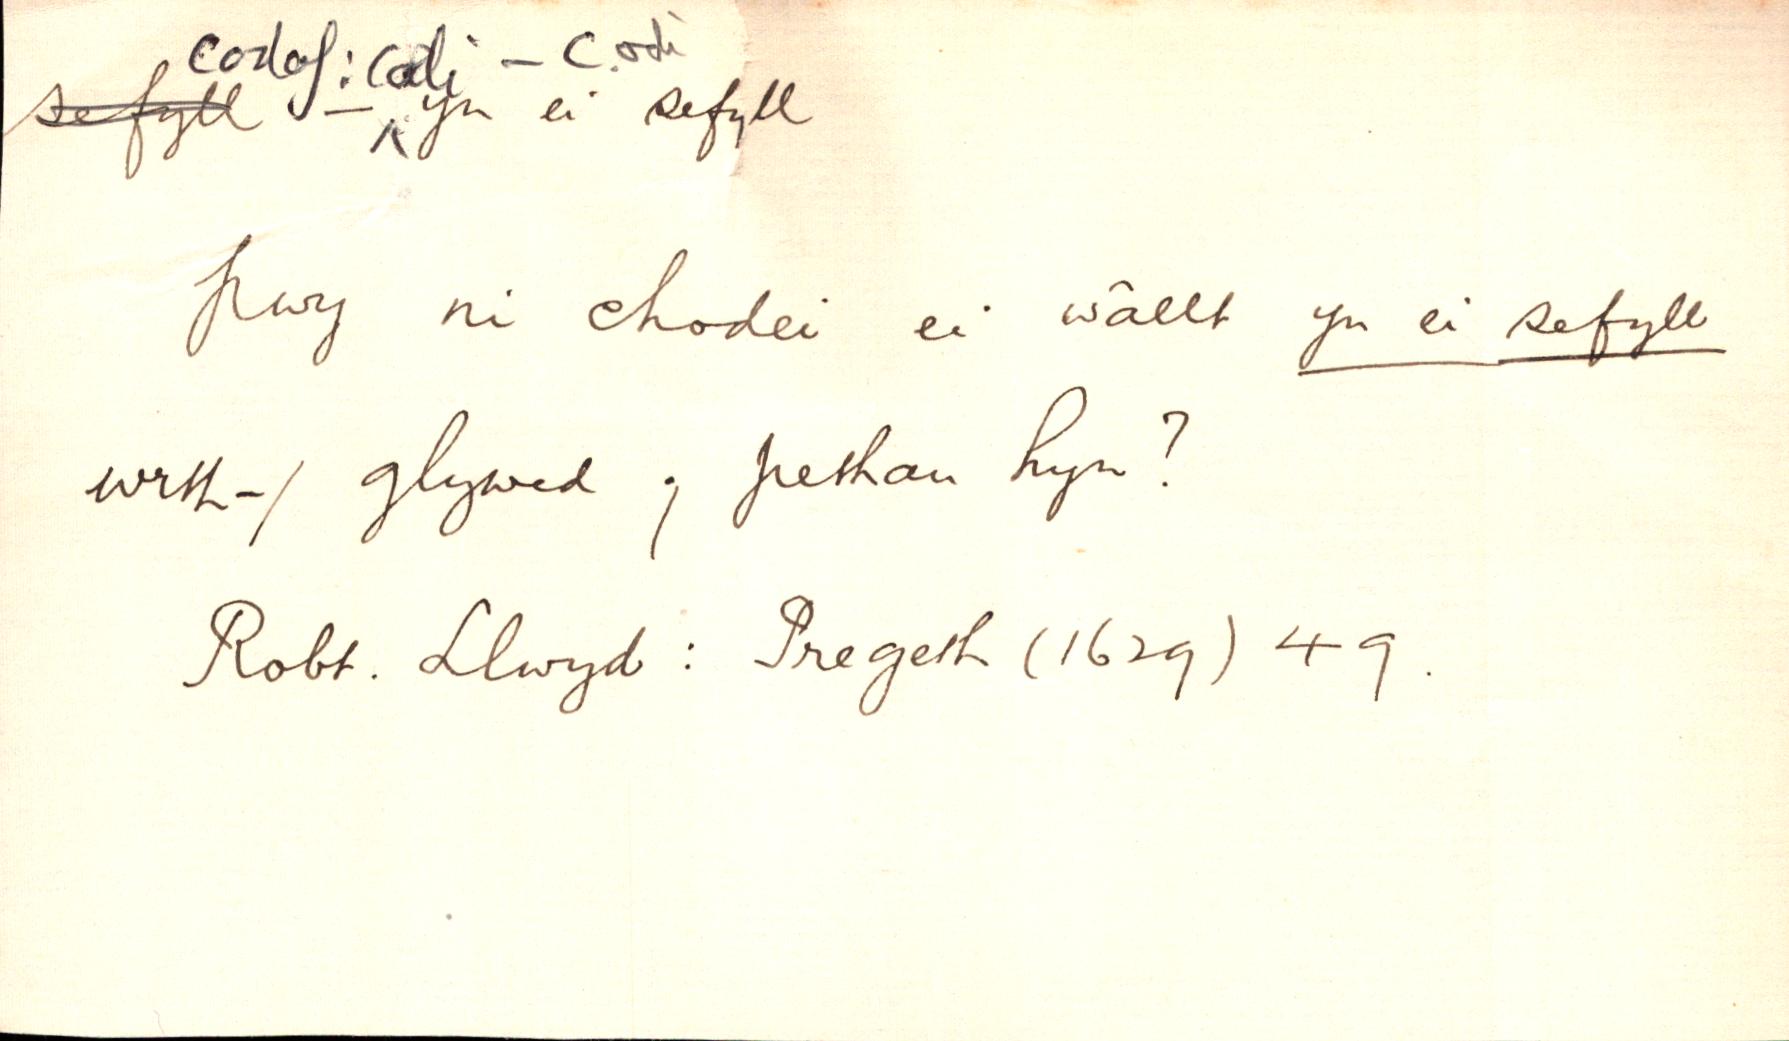 codaf: codi – codi
sefyll – yn ei sefyll
pwy ni chodei ei wâllt yn ei sefyll
wrth-/ glywed y pethau hyn?
Robt. Llwyd: Pregeth (1629) 49.